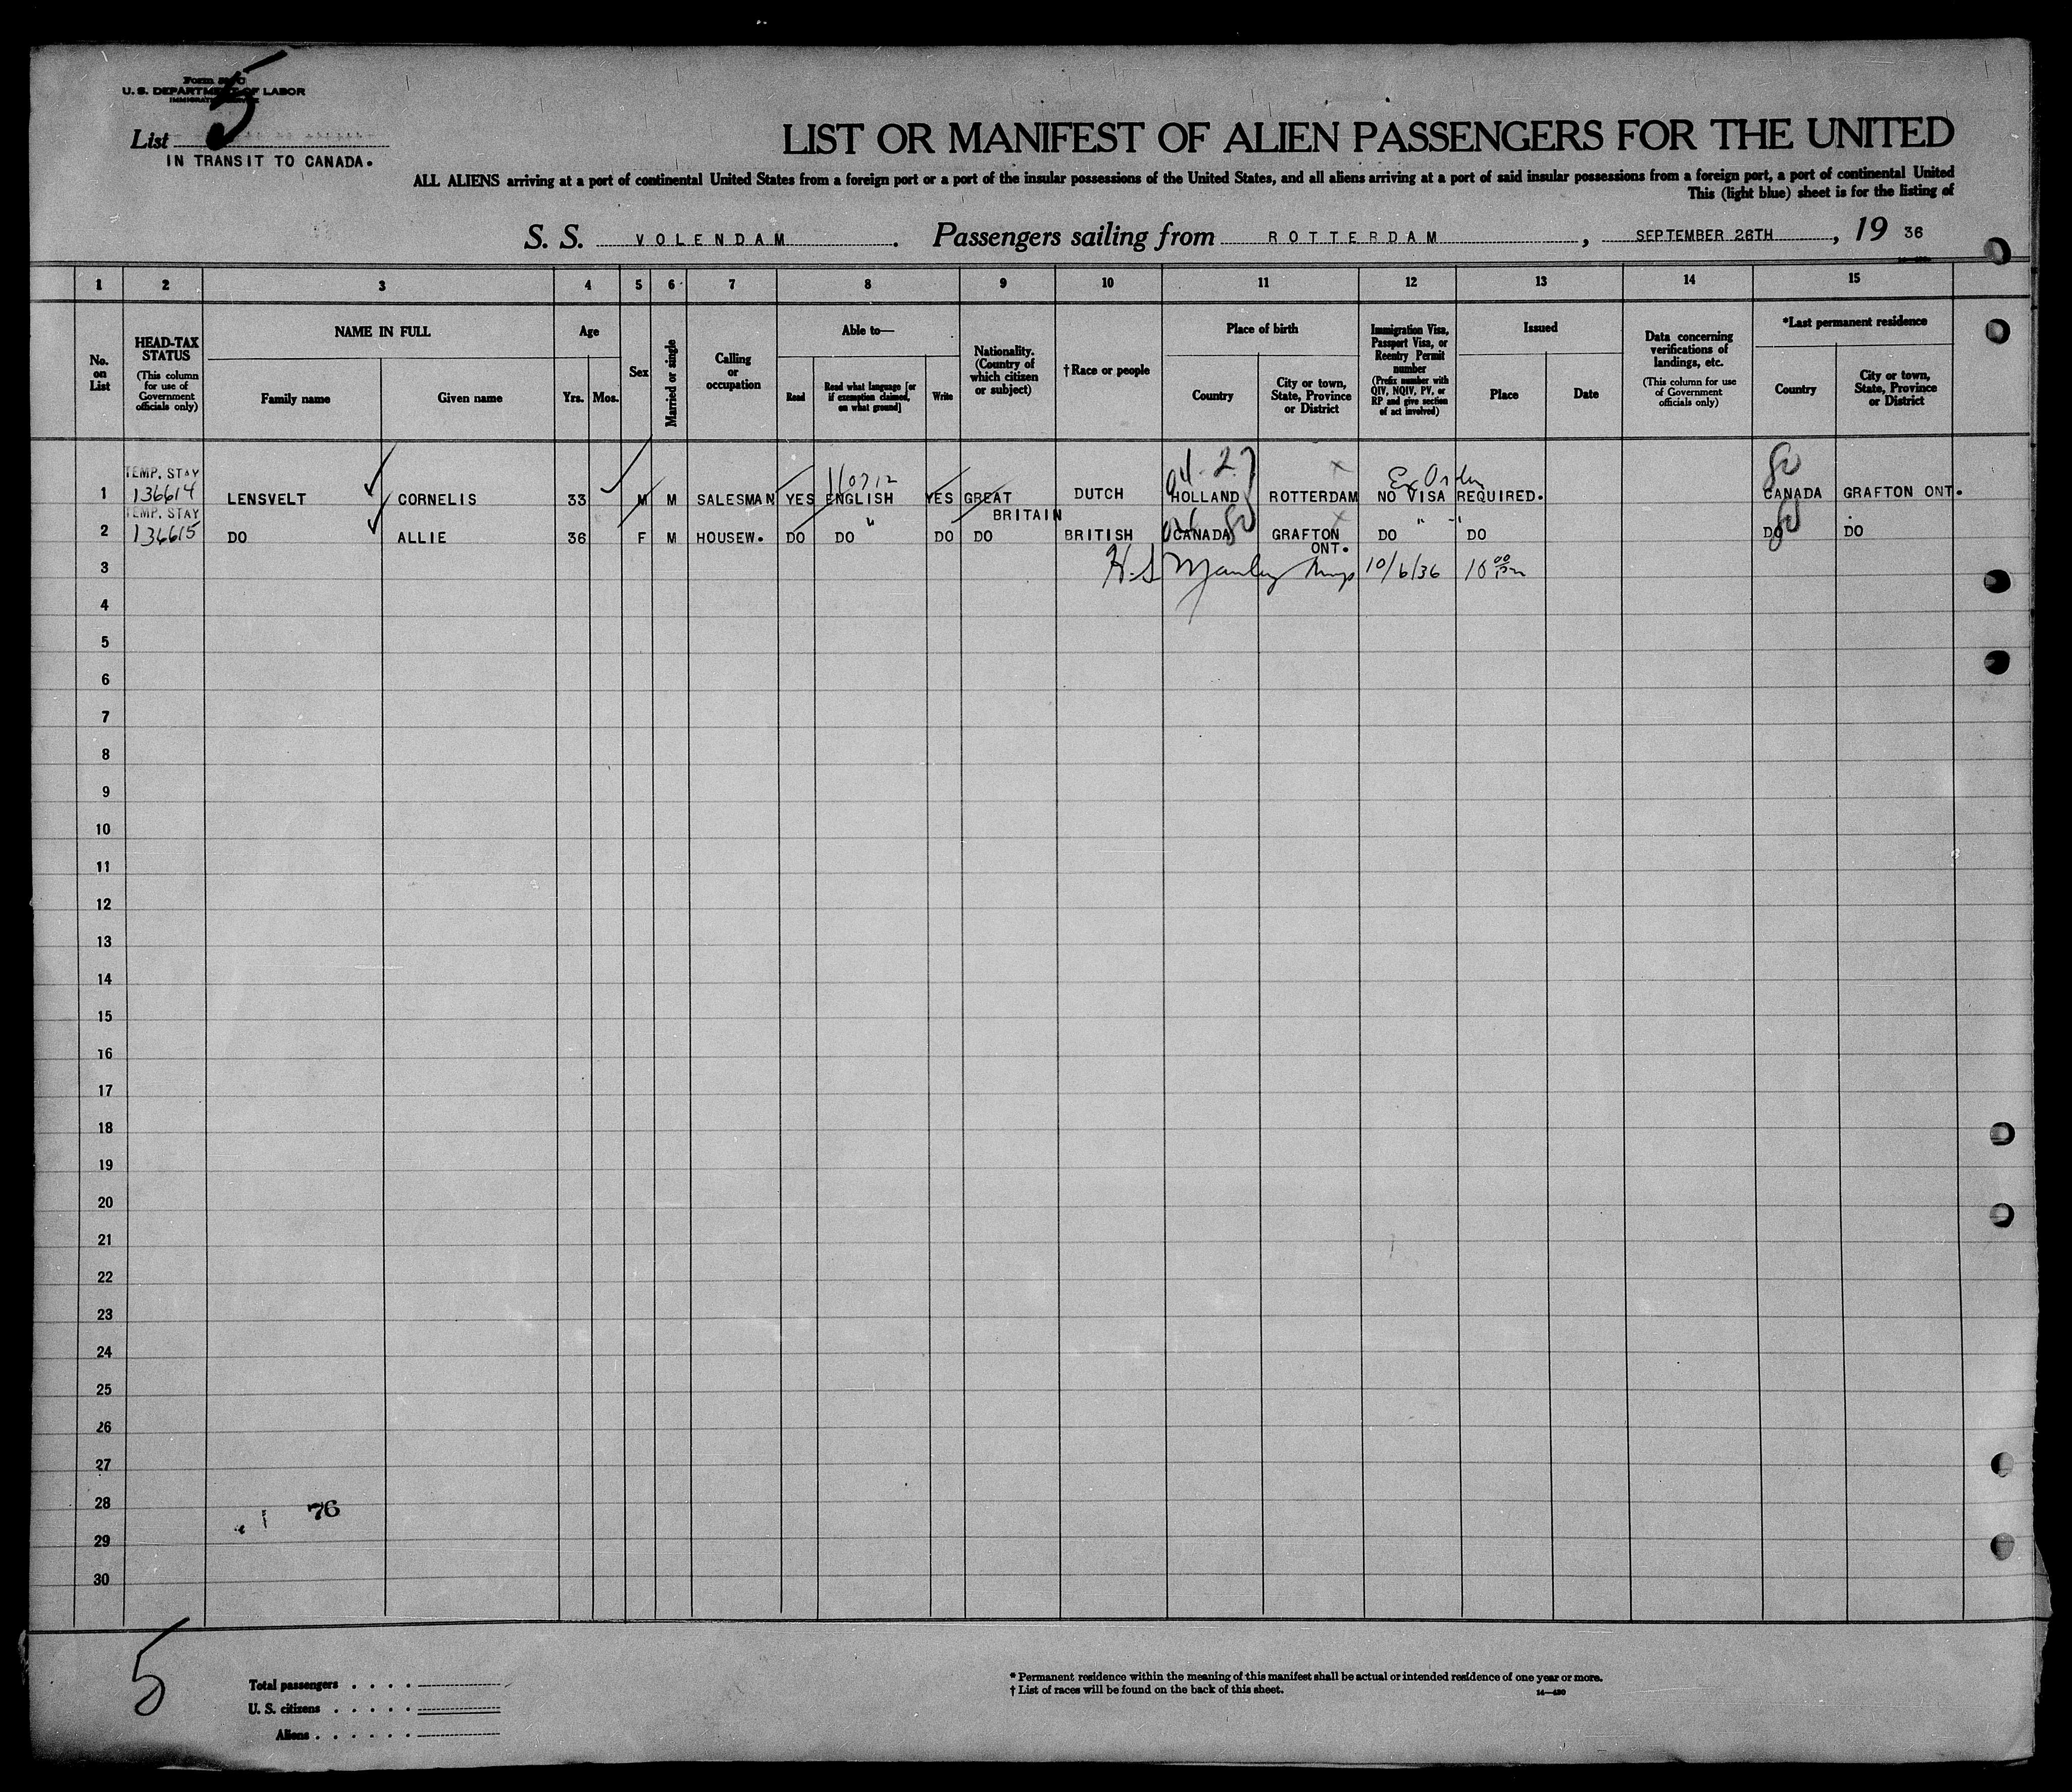 5
U. S. DEPARTMENT OF LABOR
List
IN TRANSIT TO CANADA.
LIST OR MANIFEST OF ALIEN PASSENGERS FOR THE UNITED
ALL ALIENS arriving at a port of continental United States from a foreign port or a port of the insular possessions of the United States, and all aliens arriving at a port of said insular possessions from a foreign port, a port of continental United
This (light blue) sheet is for the listing of
S. S. VOLENDAM. Passengers sailing from ROTTERDAM, SEPTEMBER 26TH, 19 36
1 2 3 4 5 6 7 8 9 10 11 12 13 14 15
No. on List
HEAD-TAX STATUS (This column for use of Government officials only)
NAME IN FULL
Family name
Given name
Age
Yrs. Mos.
Sex
Married or single
Calling or occupation
Able to—
Read
Read what language [or if exemption claimed, on what ground]
Write
Nationality. (Country of which citizen or subject)
†Race or people
Place of birth
Country
City or town, State, Province or District
Immigration Visa, Passport Visa, or Reentry Permit number (Prefix number with QIV, NQIV, PV, or RP and give section of act involved)
Issued
Place
Date
Data concerning verifications of landings, etc. (This column for use of Government officials only)
*Last permanent residence
Country
City or town, State, Province or District
TEMP. STAY Ex Order
1 136614 LENSVELT CORNELIS 33 M M SALESMAN YES ENGLISH YES GREAT BRITAIN DUTCH HOLLAND ROTTERDAM NO VISA REQUIRED. CANADA GRAFTON ONT.
TEMP. STAY
2 136615 DO ALLIE 36 F M HOUSEW. DO DO DO DO BRITISH CANADA GRAFTON ONT. DO DO DO DO
3 10/6/36
4
5
6
7
8
9
10
11
12
13
14
15
16
17
18
19
20
21
22
23
24
25
26
27
28 76
29
30
5
Total passengers
U. S. citizens
Aliens
* Permanent residence within the meaning of this manifest shall be actual or intended residence of one year or more.
† List of races will be found on the back of this sheet.